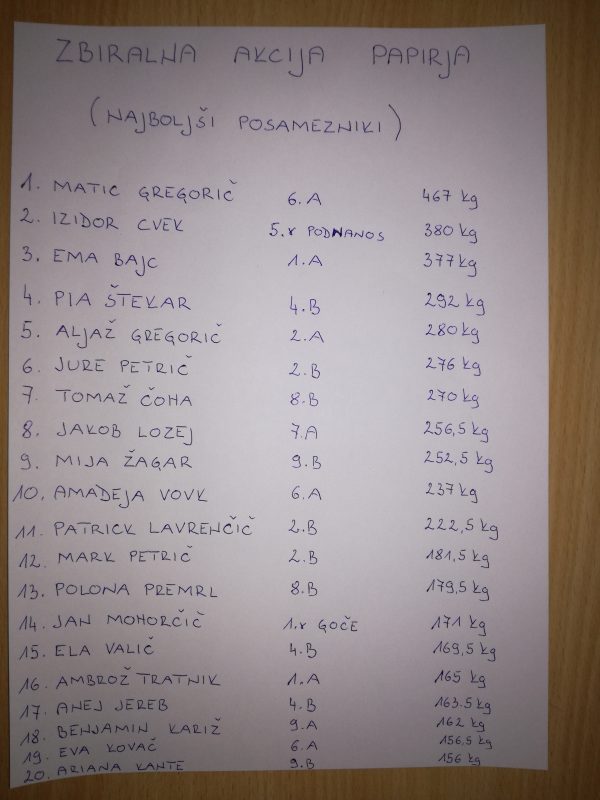 ZBIRALNA AKCIJA PAPIRJA
(NAJBOLJŠI POSAMEZNIKI)
1. MATIC GREGORIČ 6.A 467 kg
2. IZIDOR CVEK 5.r PODNANOS 380 kg
3. EMA BAJC 1.A 377 kg
4. PIA ŠTEKAR 4.B 292 kg
5. ALJAŽ GREGORIČ 2.A 280 kg
6. JURE PETRIČ 2.B 276 kg
7. TOMAŽ ČOHA 8.B 270 kg
8. JAKOB LOZEJ 7.A 256,5 kg
9. MIJA ŽAGAR 9.B 252,5 kg
10. AMADEJA VOVK 6.A 237 kg
11. PATRICK LAVRENČIČ 2.B 222,5 kg
12. MARK PETRIČ 2.B 181,5 kg
13. POLONA PREMRL 8.B 179,5 kg
14. JAN MOHORČIČ 1.r GOČE 171 kg
15. ELA VALIČ 4.B 169,5 kg
16. AMBROŽ TRATNIK 1.A 165 kg
17. ANEJ JEREB 4.B 163.5 kg
18. BENJAMIN KARIŽ 9.A 162 kg
19. EVA KOVAČ 6.A 156,5 kg
20. ARIANA KANTE 9.B 156 kg